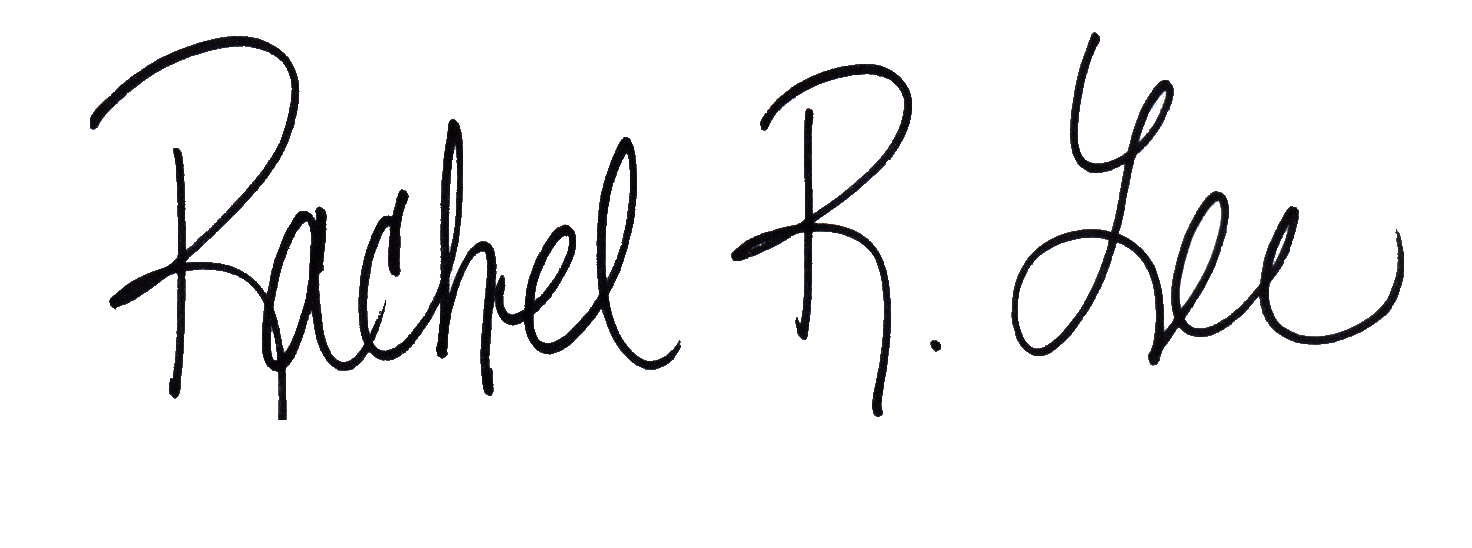 Rachel R. Lee